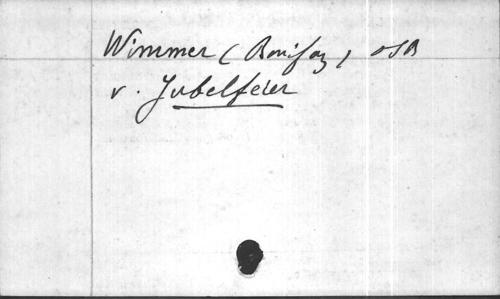 Wimmer (Bonifaz) OSB
v. Jubelfeier